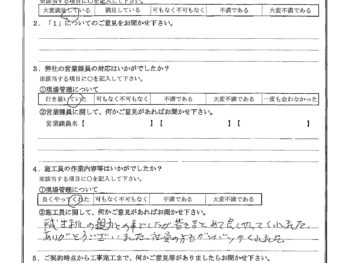 ※該当する項目に○を記入して下さい。
大変満足している 満足している 可もなく不可もなく 不満である 大変不満である
2．「1」についてのご意見をお聞かせ下さい。
3．弊社の営業議員の対応はいかがでしたか？
※該当する項目に○を記入して下さい。
①現場管理について
行き届いていた 可もなく不可もなく 不満である 大変不満である 一度も会わなかった
②営業議員に関して、何かご意見があればお聞かせ下さい。
営業議員名【 】【 】【 】
4．施工員の作業内容等はいかがでしたか？
※該当する項目に○を記入して下さい。
①現場管理について
良くやってくれた 可もなく不可もなく 不満である 大変不満である
②施工員に関して、何かご意見があればお聞かせ下さい。
の 皆さまとめて良くやってくれました
ありがとうございました の方もガンバッテくれました。
5．ご契約時点から工事完工まで、何かご意見等がありましたらお聞かせ下さい。